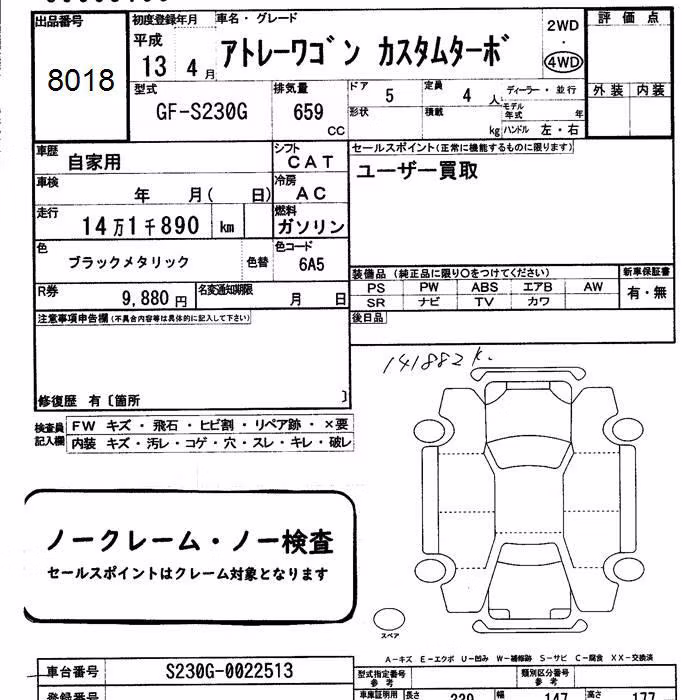 出品番号
8018
初度登録年月
平成
13 4 月
車名・グレード
アトレーワゴン カスタムターボ
2WD
・
4WD
評価点
外装 内装
型式
GF-S230G
排気量
659
CC
ドア
5
定員
4 人
ディーラー・並行
形状
積載
kg
モデル年式 年
ハンドル 左・右
車歴
自家用
シフト
CAT
セールスポイント(正常に機能するものに限ります)
ユーザー買取
車検
年 月( 日)
冷房
AC
走行
14万1千890 km
燃料
ガソリン
色
ブラックメタリック
色替
色コード
6A5
装備品 (純正品に限り○をつけてください)
新車保証書
PS PW ABS エアB AW
SR ナビ TV カワ
有・無
R券
9,880 円
名変通知期限
月 日
後日品
注意事項申告欄(不具合内容等は具体的に記入して下さい)
141882k.
修復歴 有〔箇所 〕
検査員記入欄
FW キズ・飛石・ヒビ割・リペア跡・×要
内装 キズ・汚レ・コゲ・穴・スレ・キレ・破レ
ノークレーム・ノー検査
セールスポイントはクレーム対象となります
スペア
A-キズ E-エクボ U-凹み W-補修跡 S-サビ C-腐食 XX-交換済
車台番号
S230G-0022513
型式指定番号
参考
類別区分番号
参考
登録番号
車庫証明用
長さ
339
幅
147
高さ
177